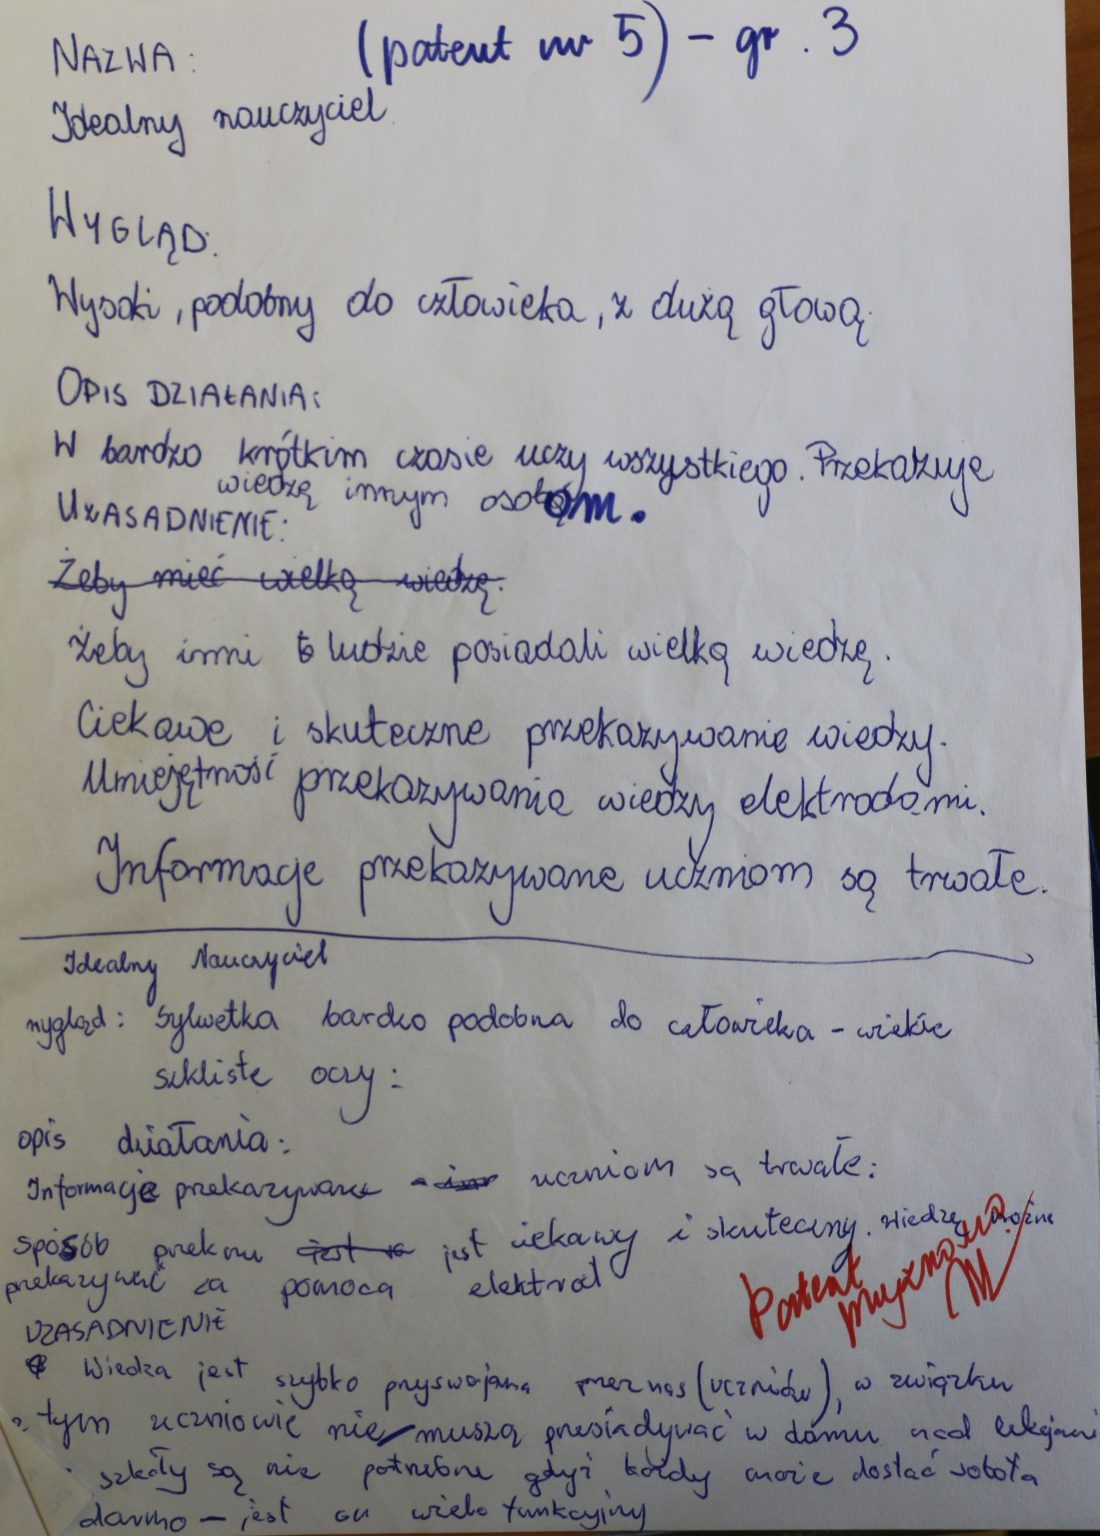 NAZWA: (patent nr 5) - gr. 3
Idealny nauczyciel
WYGLĄD:
Wysoki, podobny do człowieka, z dużą głową.
OPIS DZIAŁANIA:
W bardzo krótkim czasie uczy wszystkiego. Przekazuje
wiedzę innym osobom.
UZASADNIENIE:
Żeby mieć wielką wiedzę.
Żeby inni ludzie posiadali wielką wiedzę.
Ciekawe i skuteczne przekazywanie wiedzy.
Umiejętność przekazywania wiedzy elektrodami.
Informacje przekazywane uczniom są trwałe.
Idealny Nauczyciel
wygląd: Sylwetka bardzo podobna do człowieka - wielkie
szkliste oczy:
opis działania:
Informacje przekazywane uczniom są trwałe:
Sposób przekazu jest ciekawy i skuteczny. Wiedzę można
przekazywać za pomocą elektrod
Patent
przyznano
UZASADNIENIE
Wiedza jest szybko przyswajana przez nas (uczniów), w związku
z tym uczniowie nie muszą przesiadywać w domu nad lekcjami
szkoły są nie potrzebne gdyż każdy może dostać robota
darmo - jest on wielo funkcyjny